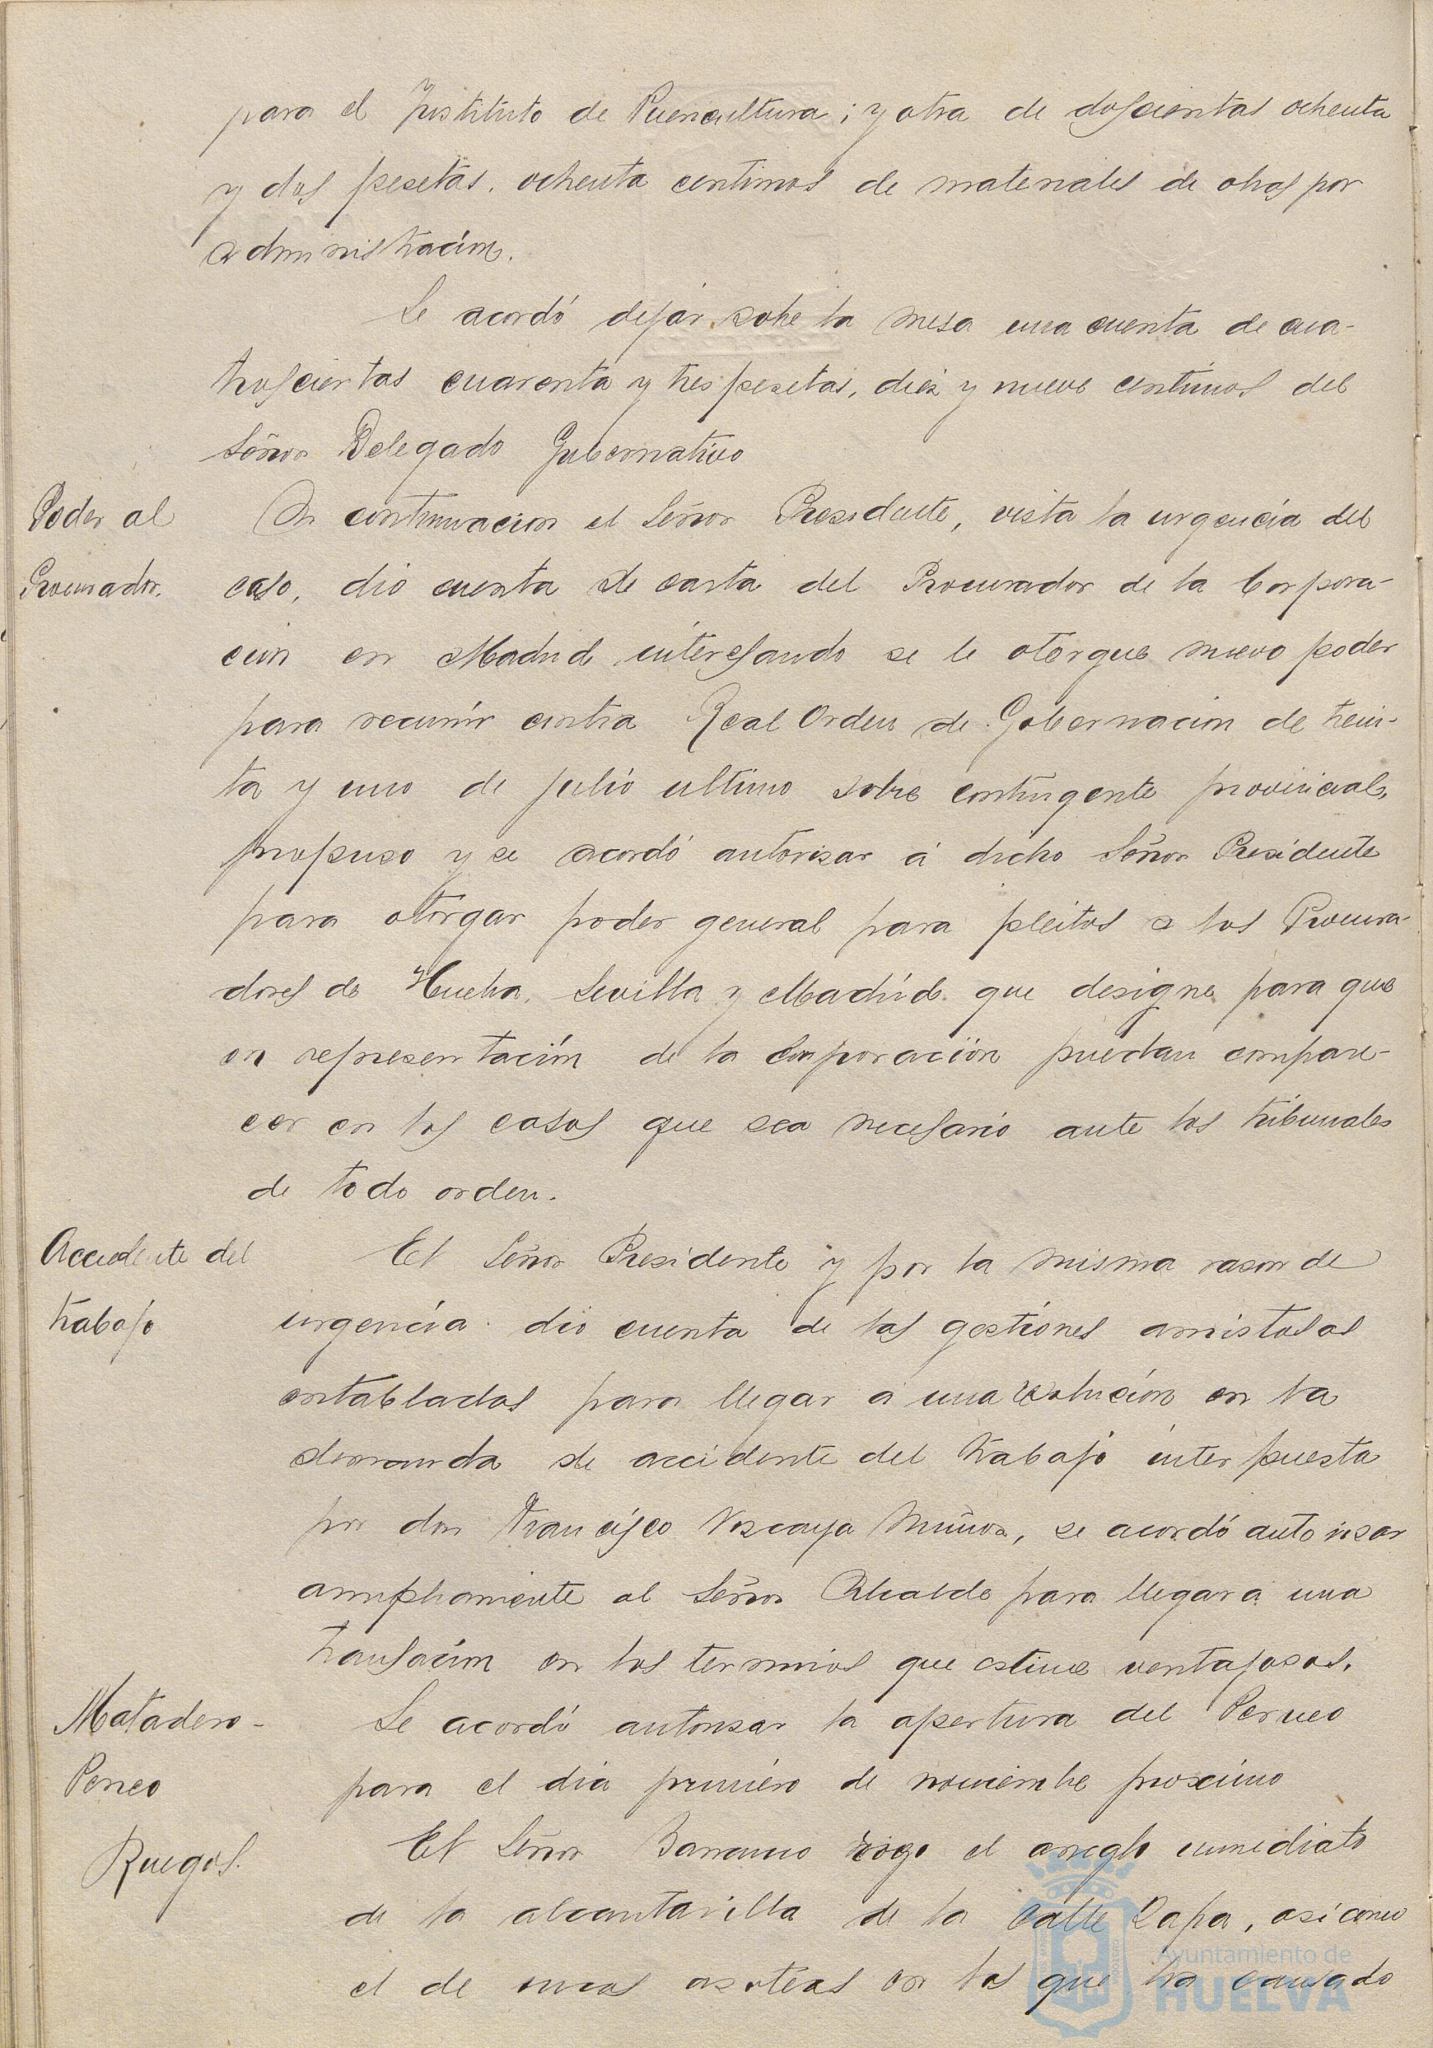 para el Instituto de Puericultura; y otra de doscientas ochenta
y dos pesetas, ochenta centimos de materiales de obras por
administración.
Se acordó dejar sobre la mesa una cuenta de cua-
troscientas cuarenta y tres pesetas, diez y nueve centimos del
Señor Delegado Gubernativo
Poder al
Procurador.
A continuacion el Señor Presidente, vista la urgencia del
caso, dio cuenta de carta del Procurador de la Corpora-
cion en Madrid interesando se le otorgue nuevo poder
para recurrir contra Real Orden de Gobernacion de trein-
ta y uno de julio ultimo sobre contingente provincial,
propuso y se acordó autorizar á dicho Señor Presidente
para otorgar poder general para pleitos a los Procura-
dores de Huelva, Sevilla y Madrid que designe para que
en representación de la Corporación puedan compare-
cer en los casos que sea necesario ante los tribunales
de todo orden.
Accidente del
trabajo
El Señor Presidente y por la misma razon de
urgencia dio cuenta de las gestiones amistosas
entabladas para llegar a una solución en la
demanda de accidente del trabajo interpuesta
por don Francisco Vizcaya Muñoz, se acordó autorizar
ampliamente al Señor Alcalde para llegar a una
transación en los terminos que estime ventajosos.
Matadero-
Perneo
Se acordó autorizar la apertura del Perneo
para el dia primero de noviembre proximo
Ruegos.
El Señor Barranco rogo el arreglo inmediato
de la alcantarilla de la Calle Rapa, asi como
el de unas azoteas en las que ha causado
Ayuntamiento de
HUELVA